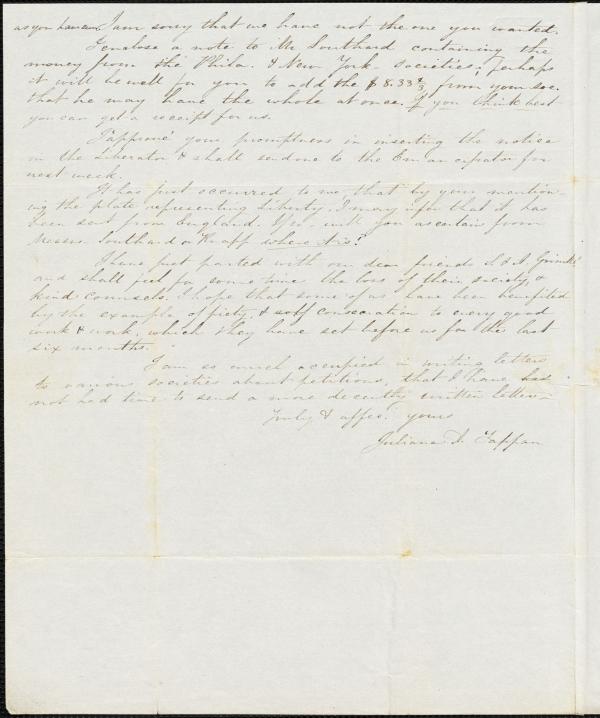 as you have seen. I am sorry that we have not the one you wanted.
I enclose a note to Mr Southard containing the
money from the Phila. & New York societies; perhaps
it will be well for you to add the $8.33⅓ from your soc.
that he may have the whole at once. If you think best
you can get a receipt for us.
I approve your promptness in inserting the notice
in the Liberator & shall send one to the Emancipator for
next week.
It has just occurred to me, that by your mention-
ing the plate representing Liberty, I may infer that it has
been sent from England. If so, will you ascertain from
Messrs. Southard or Knapp where it is?
I have just parted with our dear friends S. & A. Grimké
and shall feel for some time the loss of their society, &
kind counsels. I hope that some of us have been benefited
by the example of piety, & self consecration to every good
work & work, which they have set before us for the last
six months.
I am so much occupied in writing letters
to various societies about petitions, that I have had
not had time to send a more decently written letter.
Truly & affec. yours
Juliana A. Tappan